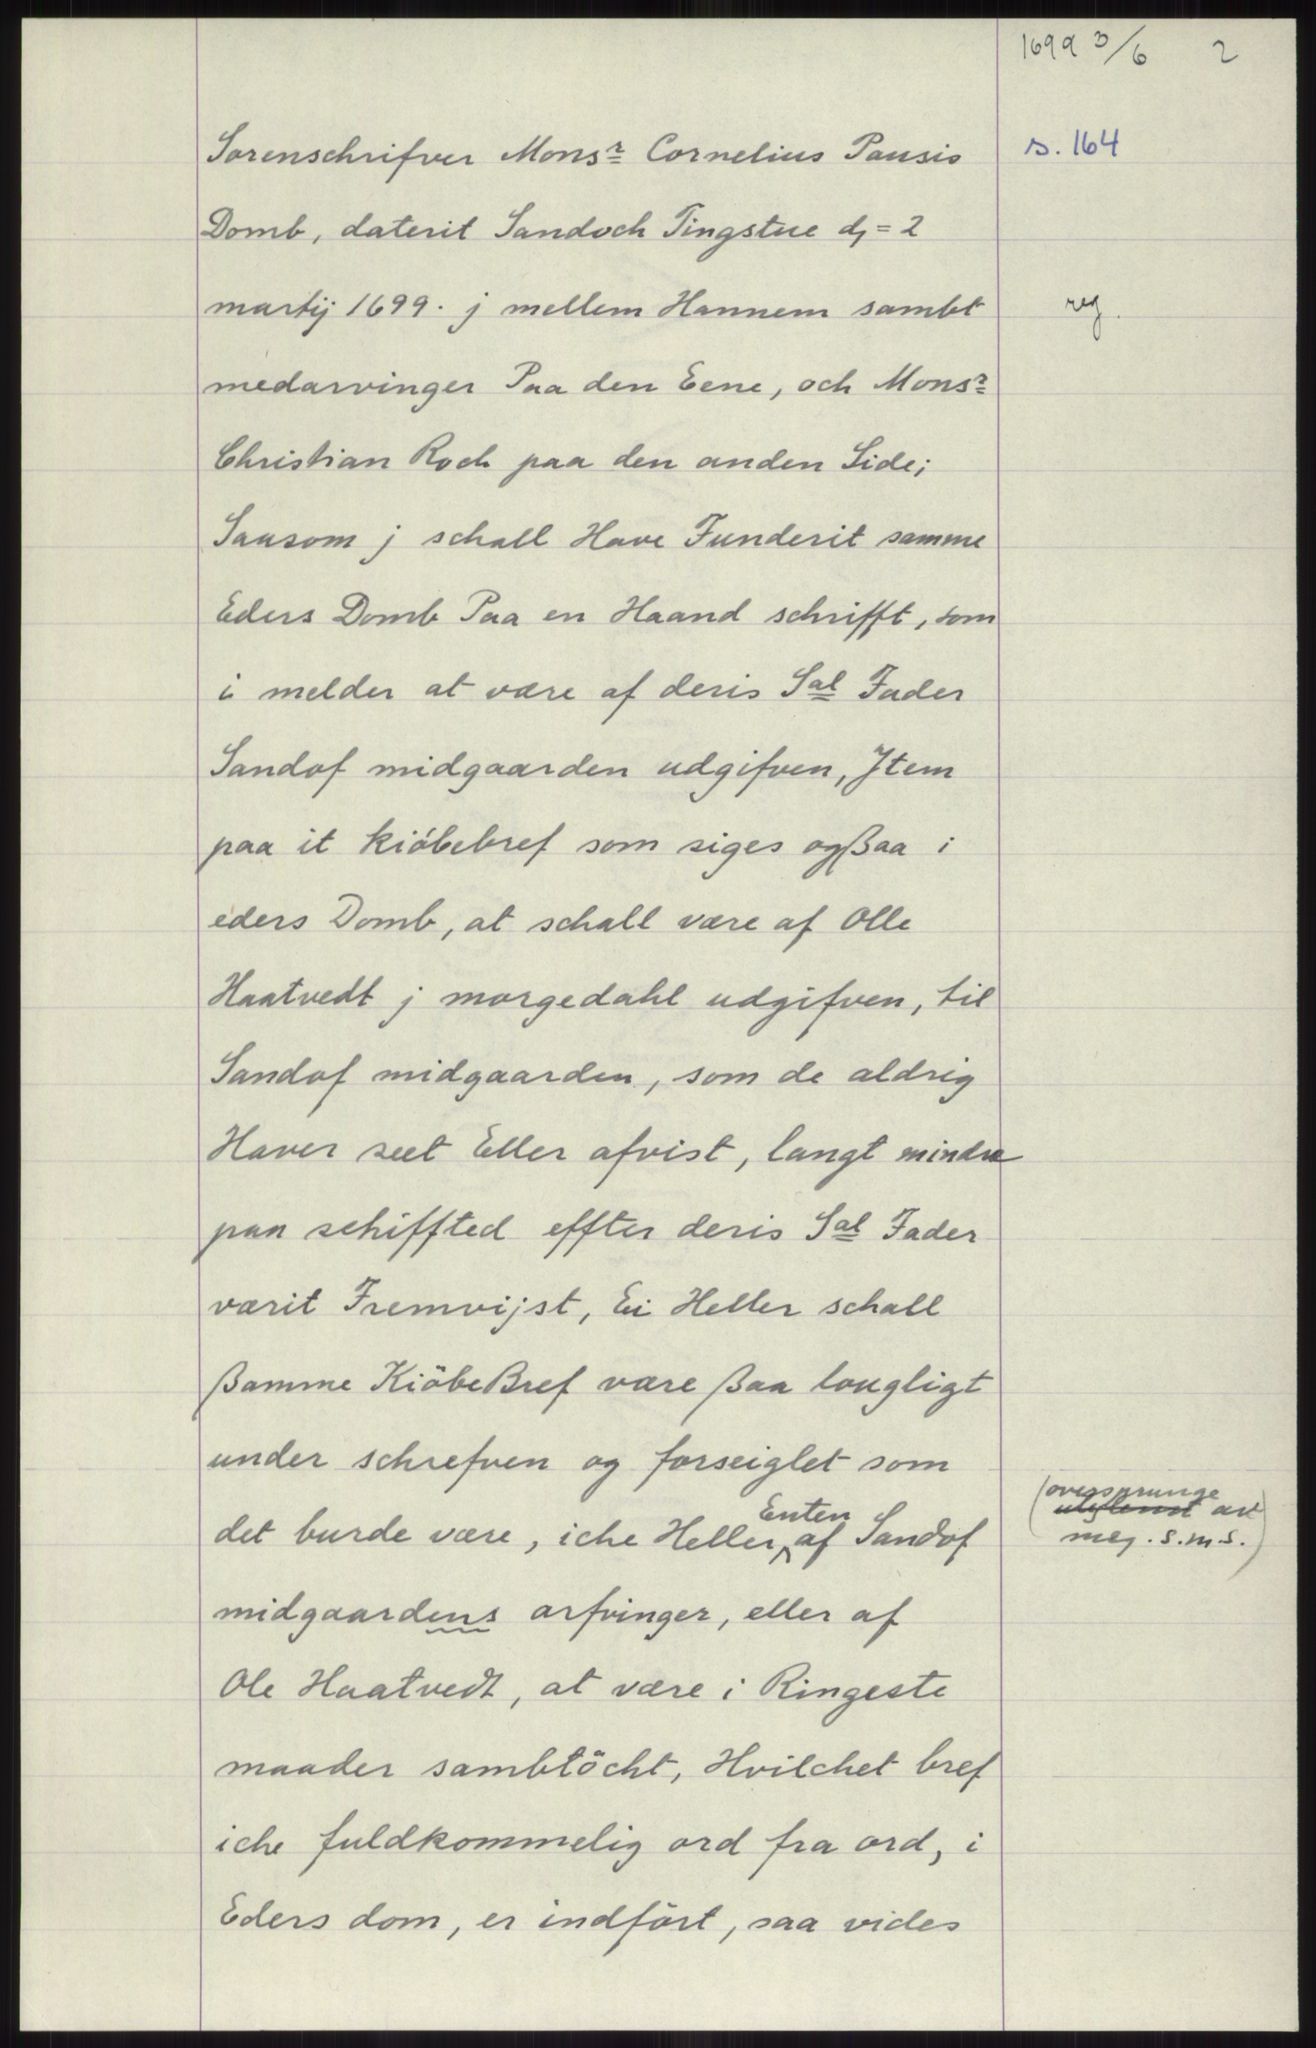 1699 3/6 2
Sorenschrifver Monsr Cornelius Pausis
s. 164
Domb, daterit Sandoch Tingstue dj = 2
martij 1699. j mellem Hannem sambt
reg.
medarvinger Paa den Eene, och Monsr
Christian Roch paa den anden Side;
Saasom j schall Have Funderit samme
Eders Domb Paa en Haand schrifft, som
i melder at være af deris Sal Fader
Sandof midgaarden udgifven, Jtem
paa it kiöbebref som siges ogßaa i
eders Domb, at schall være af Olle
Haatvedt j morgedahl udgifven, til
Sandof midgaarden, som de aldrig
Haver seet Eller afvist, langt mindre
paa schiffted effter deris Sal Fader
værit Fremvijst, Ei Heller schall
ßamme KiöbeBref være ßaa lougligt
under schrefven og forseiglet som
(oversprunge
det burde være, iche Heller Enten af Sandof
av
meg. S.M.S.)
midgaardens arfvinger, eller af
Ole Haatvedt, at være i Ringeste
maader sambtöcht, Hvilchet bref
iche fuldkommelig ord fra ord, i
Eders dom, er indfört, saa vides